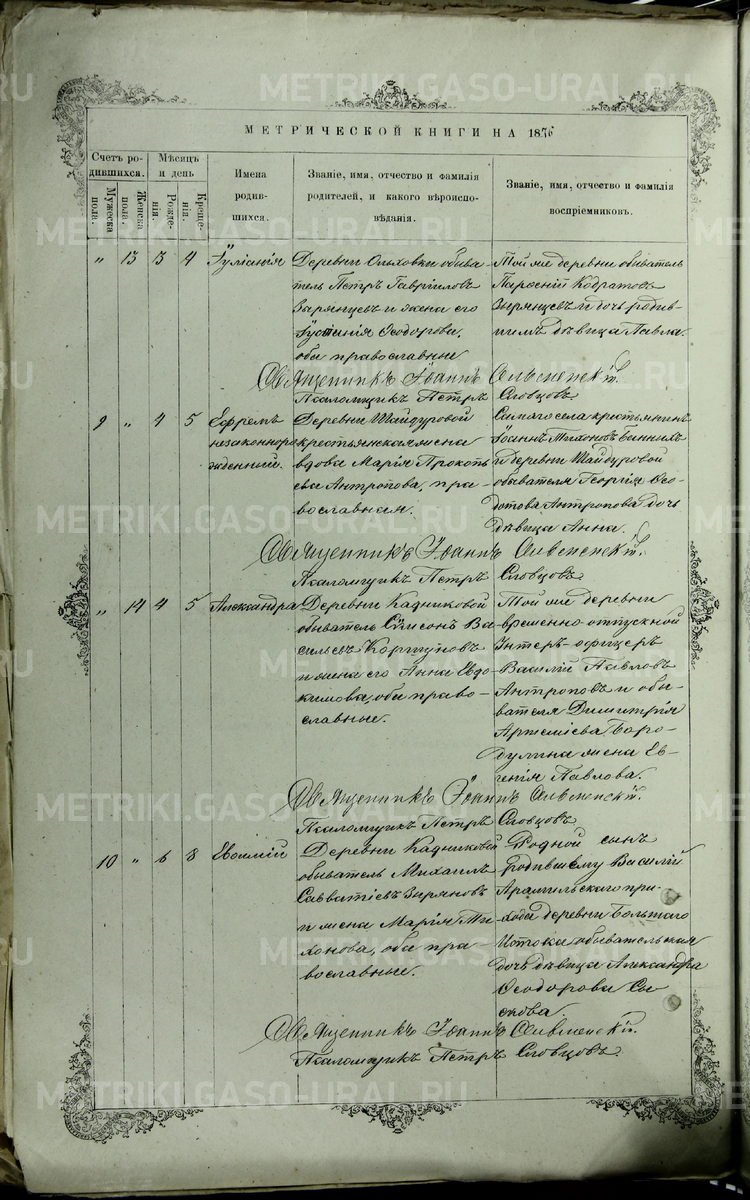 МЕТРИЧЕСКОЙ КНИГИ НА 1876
Счетъ ро-
дившихся.
Мѣсяцъ
и день
Мужеска
пола.
Женска
пола.
Рожде-
нія.
Креще-
нія.
Имена
родив-
шихся.
Званіе, имя, отчество и фамилія
родителей, и какого вѣроиспо-
вѣданія.
Званіе, имя, отчество и фамилія
воспріемниковъ.
„ 13 3 4 Іуліанія
Деревни Ольховки обыва-
тель Петръ Гавріиловъ
Зырянцевъ и жена его
Іустинія Ѳеодорова,
оба православные
Той же деревни обыватель
Кодратовъ
Зырянцевъ и дочь родив-
шимъ дѣвица Павла.
Священникъ Іоаннъ
Псаломщикъ Петръ Словцовъ
9 „ 4 5 Ефремъ
незаконноро
жденный.
Деревни Шайдуровой
крестьянская жена
вдова Марія Прокопь
ева Антропова, пра-
вославная.
Самаго села крестьянинъ
Іоаннъ Тихоновъ
и деревни Шайдуровой
обывателя Георгія Ѳео-
дотова Антропова дочь
дѣвица Анна.
Священникъ Іоаннъ
Псаломщикъ Петръ Словцовъ
„ 14 4 5 Александра
Деревни Кадниковой
обыватель Сѵмеонъ Ва
сильевъ Коршуновъ
и жена его Анна Евдо
кимова, оба право-
славные.
Той же деревни
временно-отпускной
Унтеръ-офицеръ
Василій Павловъ
Антроповъ и обы-
вателя Димитрія
Артеміева Боро-
дулина жена Ев-
генія Павлова.
Священникъ Іоаннъ
Псаломщикъ Петръ Словцовъ
10 „ 6 8 Евѳимій
Деревни Кадниковой
обыватель Михаилъ
Савватіевъ Зыряновъ
и жена Марія Ти
хонова, оба пра-
вославные.
Родной сынъ
родившему Василій
Арамильскаго при-
хода деревни Большаго
Истока обывательская
дочь дѣвица Александра
Ѳеодорова Сы
скова.
Священникъ Іоаннъ
Псаломщикъ Петръ Словцовъ
METRIKI.GASO-URAL.RU